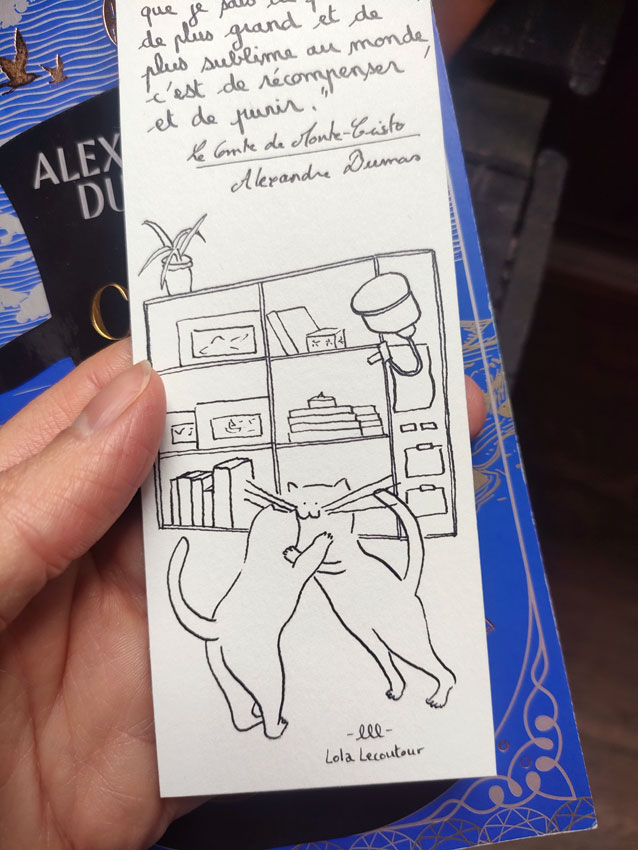 que je sais
de plus grand et de
plus sublime au monde,
c'est de récompenser
et de punir."
Le Comte de Monte-Cristo
Alexandre Dumas
ALEX
DU
C
-lll-
Lola Lecoutour